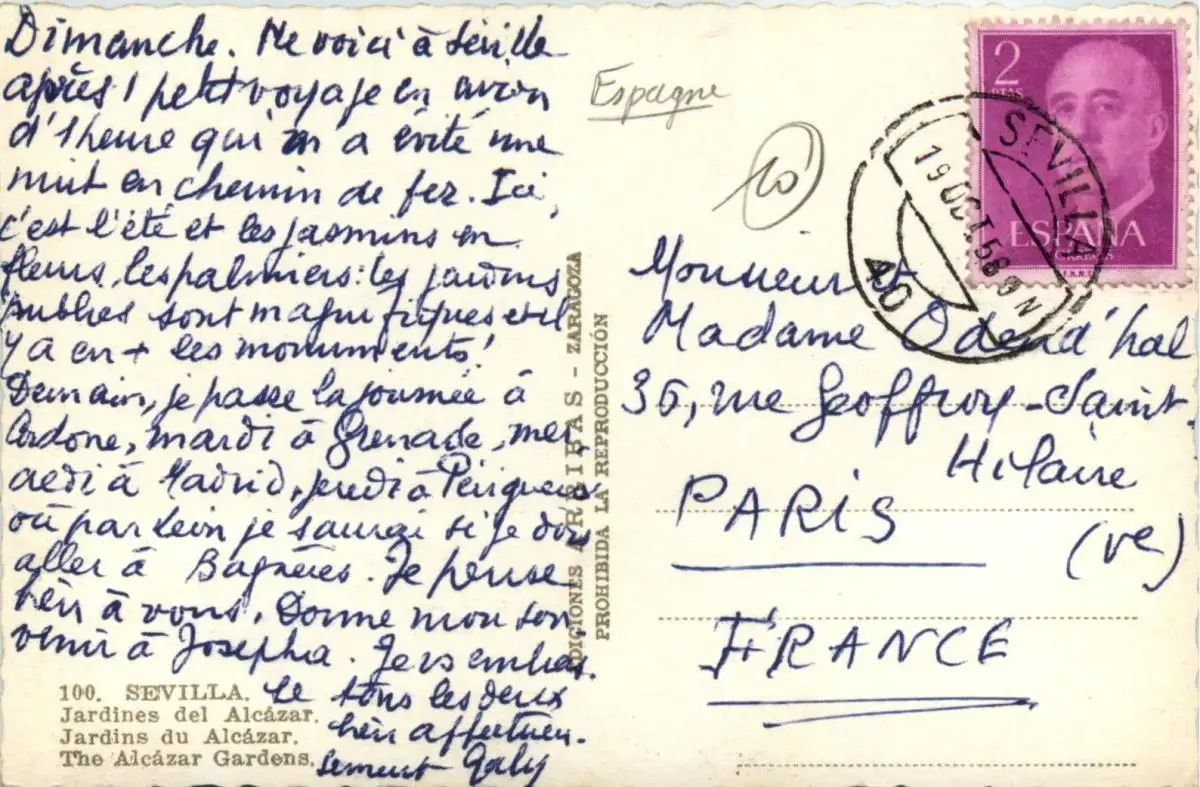 Dimanche. Me voici à Séville
après 1 petit voyage en avion
d'1 heure qui m'a évité une
nuit en chemin de fer. Ici,
c'est l'été et les jasmins en
fleurs, les palmiers: les jardins
publics sont magnifiques et il
y a en + les monuments!
Demain, je passe la journée à
Cordoue, mardi à Grenade, mer
credi à Madrid, jeudi à Périgueux
où je saurai si je dois
aller à Bagnères. Je pense
bien à vous. Donne mon sou
venir à Josepha. Je vs embras.
se tous les deux
bien affectueu.
sement Galy
100. SEVILLA.
Jardines del Alcázar.
Jardins du Alcázar.
The Alcázar Gardens.
EDICIONES ARRIBAS - ZARAGOZA
PROHIBIDA LA REPRODUCCIÓN
Espagne
10
2
PTAS
ESPAÑA
CORREOS
F.N.M.T.
SEVILLA
19 OCT. 56
40
Monsieur et
Madame Odend'hal
36, rue Geoffroy-Saint-
Hilaire
PARIS
(Ve)
FRANCE